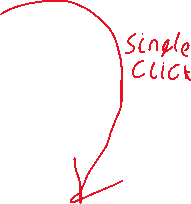 single
click